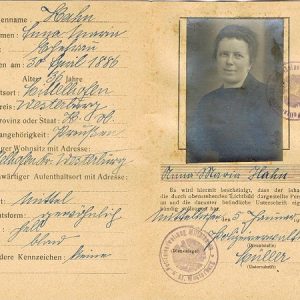 nname: Hahn
men: Anna Maria
Ehefrau
en am: 30 April 1886
Alter: 36 Jahre
haltsort: Mittelhofen
reis: Westerburg
rovinz oder Staat: H. N.
angehörigkeit: Preußen
Wohnsitz mit Adresse:
Westerburg
wärtiger Aufenthaltsort mit Adresse:
Mittel
tsform: gewöhnlich
blond
dere Kennzeichen: keine
Anna Maria Hahn
Es wird hiermit bescheinigt, daß der Inha
die durch obenstehendes Lichtbild dargestellte Person
und die darunter befindliche Unterschrift eigen
händig vollzogen hat
Mittelhofen, 5 Januar
Müller
(Unterschrift)